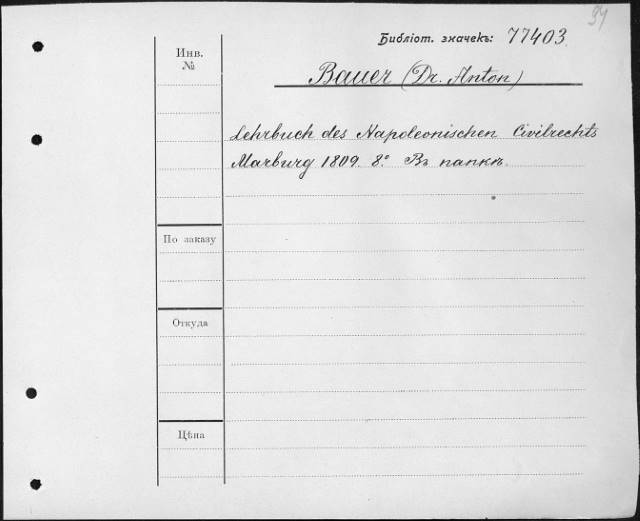 94
Библіот. значекъ: 77403.
Инв.
№
Bauer (Dr. Anton)
Lehrbuch des Napoleonischen Civilrechts
Marburg 1809. 8.° Въ папкѣ.
По заказу
Откуда
Цѣна